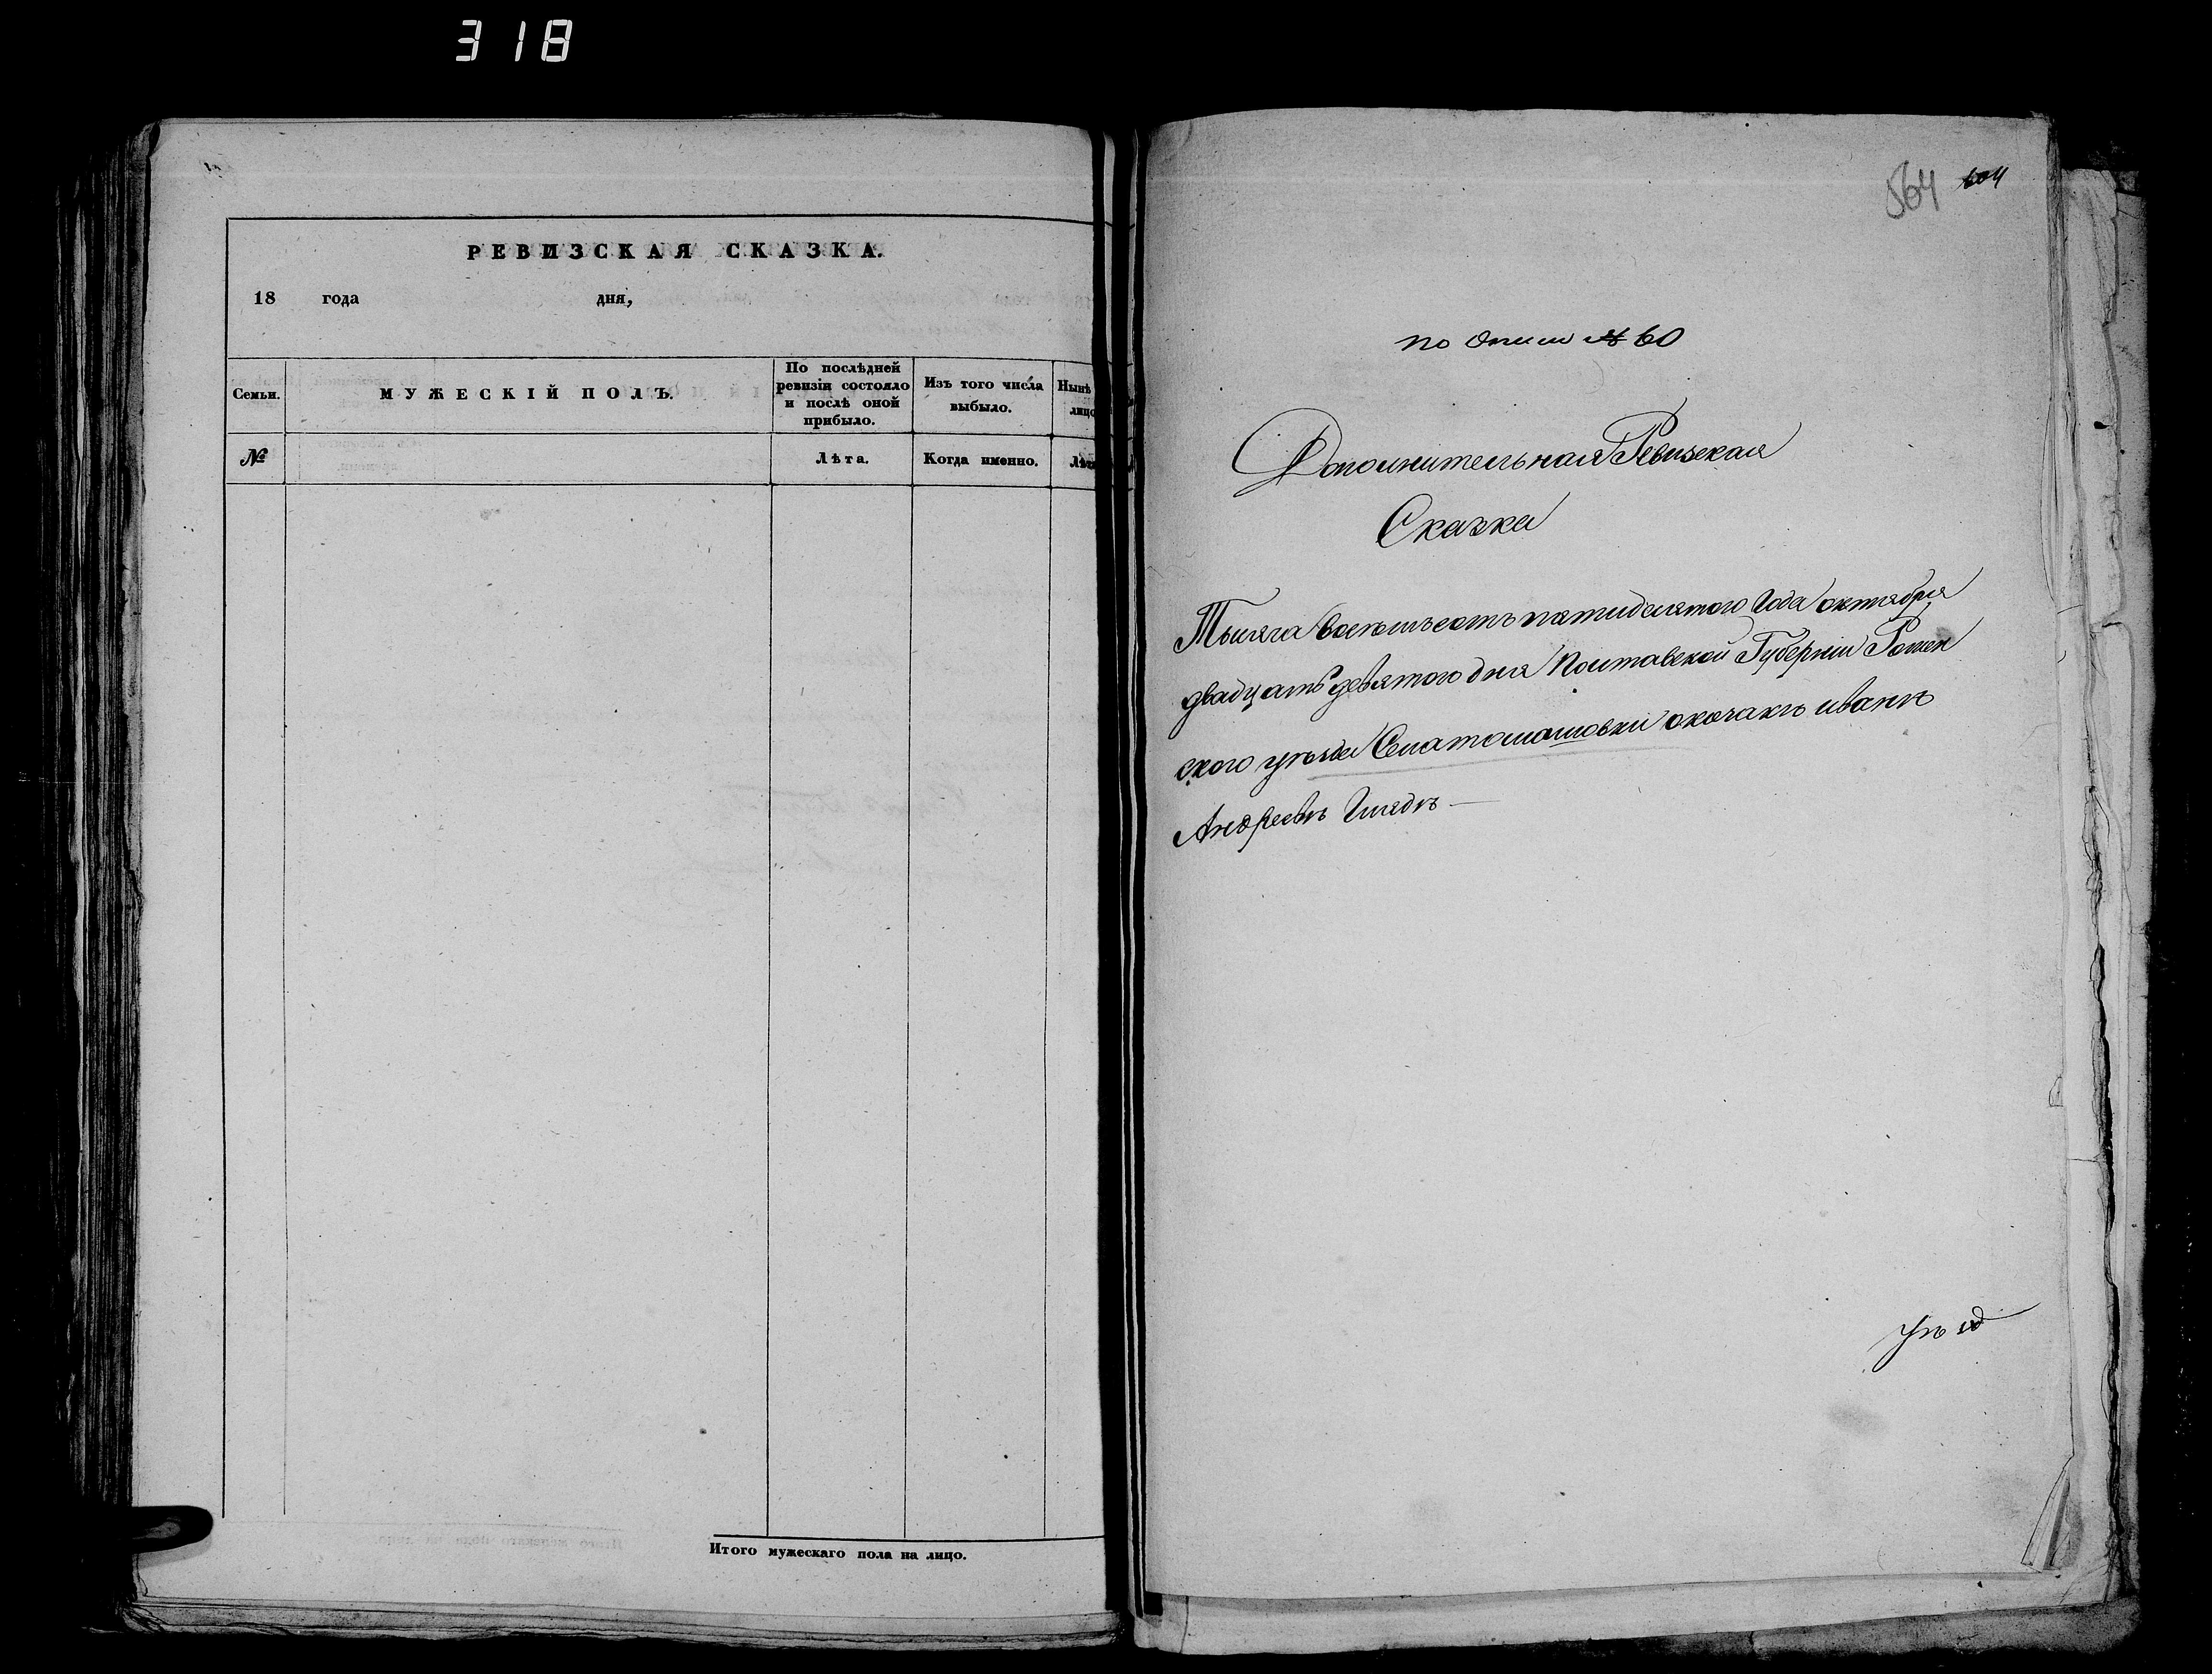 318
РЕВИЗСКАЯ СКАЗКА.
18 года дня,
Семьи.
МУЖЕСКІЙ ПОЛЪ.
По послѣдней
ревизіи состояло
и послѣ оной
прибыло.
Изъ того числа
выбыло.
Нынѣ
лицо
№
Лѣта.
Когда именно.
Лѣта
Итого мужескаго пола на лицо.
564 604
по описи № 60
Дополнительная Ревизская
Сказка
Тысяча восемьсотъ пятидесятого Года октября
двадцать девятого дня Полтавской Губерніи Ромен
ского уѣзда оказакъ иванъ
Андреевъ Гмядъ